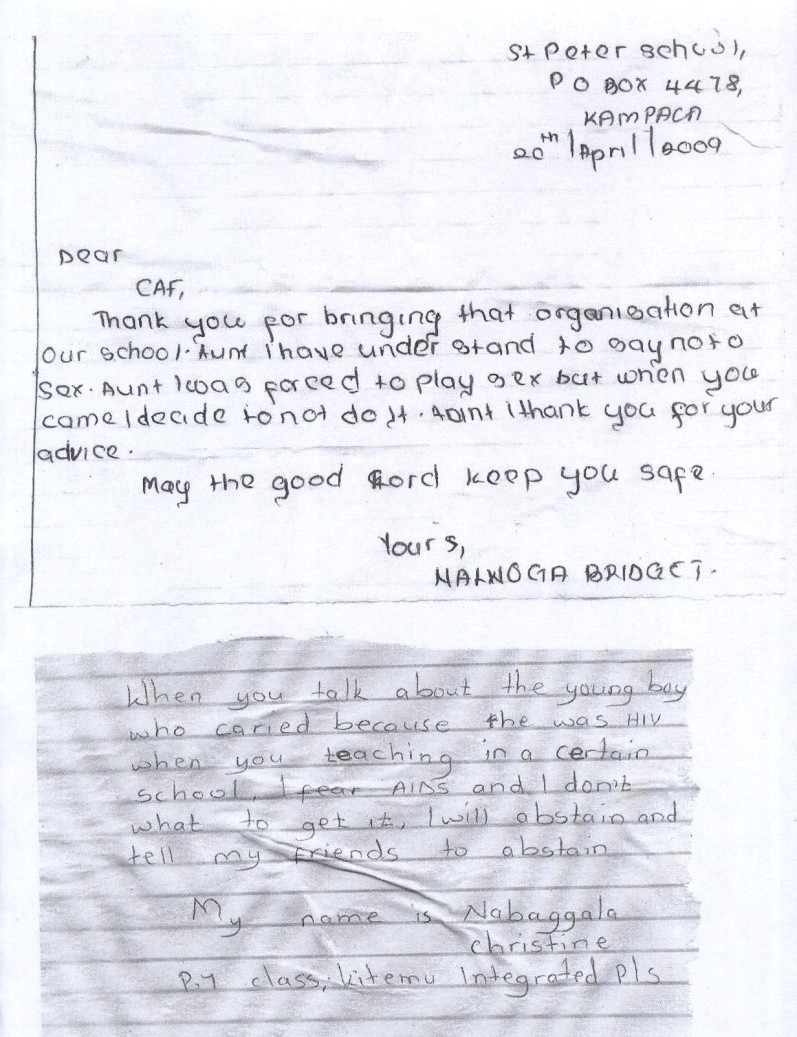 St Peter school,
P O BOX 4478,
KAMPALA
20th/April/2009
Dear
CAF,
Thank you for bringing that organisation at
our school. Aunt I have under stand to say no to
sex. Aunt I was forced to play sex but when you
came I decide to not do it. Aunt i thank you for your
advice.
May the good Lord keep you safe.
Yours,
NALWOGA BRIDGET.
When you talk about the young boy
who caried because the was HIV
when you teaching in a certain
school, I fear AIDS and I don't
what to get it, I will abstain and
tell my friends to abstain
My name is Nabaggala
christine
P.7 class, kitemu Integrated P/s